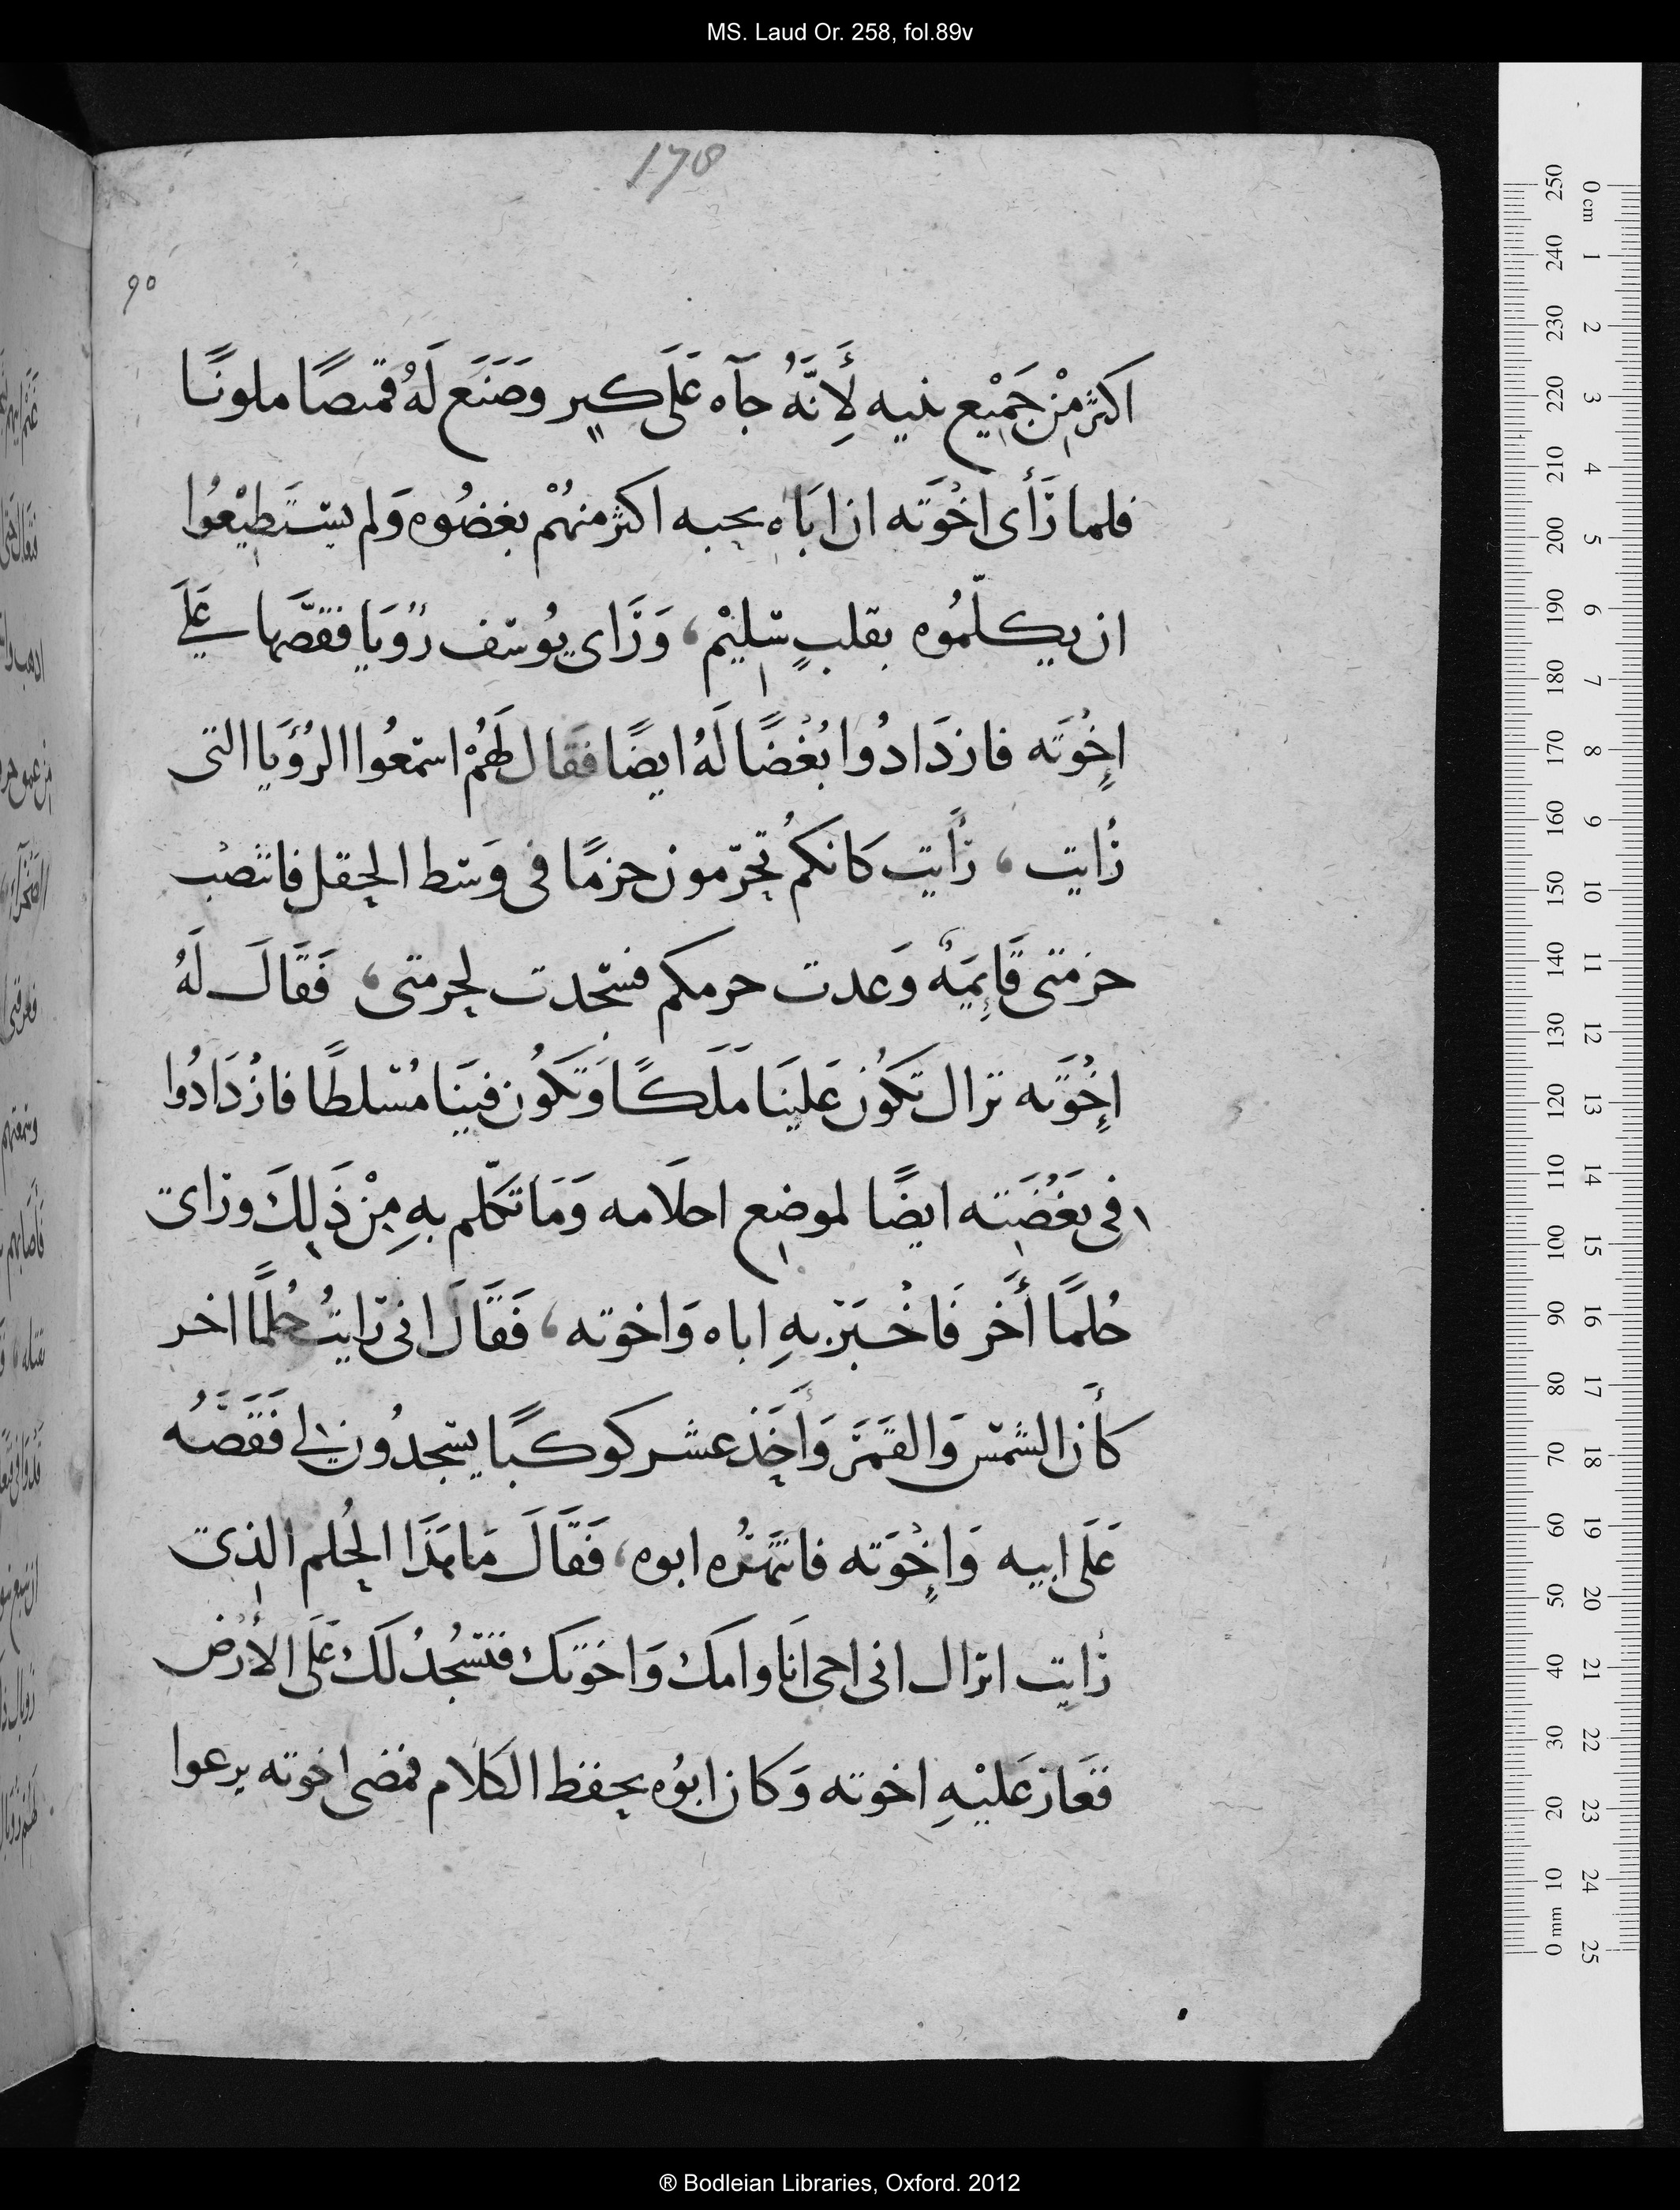 MS. Laud Or. 258, fol.89v
178
90
اكثر مِنْ جَمِيْع بنيه لِأَنَّهُ جآه عَلَى كبِرٍ وصَنَع لَهُ قمْصًا ملونًا
فلما رَأَى اخْوَته ان ابَاه يحبه اكثر منهُمْ بغضُوه وَلم يسْتَطِيْعُوا
ان يكلّمُوه بقلبٍ سَلِيْم، وَرَاى يوُسف رُوْيَا فقصَّها عَلَى
اِخْوَته فازدَادُوا بُغْضًا لَهُ ايضًا فقَال لَهُمْ اسمعُوا الرُؤيَا التى
رَايت، رَأيت كانكُم تحزّمون حزمًا فى وَسط الحقل فانتصْب
حزمتى قَايِمَةً وَعدت حزمكم فسجدت لحزمتى، فَقَالَ لَهُ
اِخْوَته ترال تكُوْن عَلينَا مَلَكًا وَتكُوْن فينَا مُسَلطًا فازْدَادُوا
فى بَغْضَته ايضًا لموضع احلَامه وَمَا تكَلّم بهِ مِنْ ذَلِكَ وراى
حُلمًا أَخر فَاخْبَر بهِ اباه وَاخوته، فَقَالَ انى رَايتُ حُلمًا اخر
كأَن الشمْس وَالقَمَر وَأَحَد عشر كوكبًا يسْجدُون لى فَقَصَّهُ
عَلَى ابيه وَاِخْوَته فانتهَرُه ابوه، فَقَالَ مَا هَذَا الحُلم الذى
رَايت اترال انى احى انَا وامك وَاخوتك فنسْجُدُ لكَ عَلَى الأَرْض
فغَار عَليْهِ اخوته وَكان ابوُه يحفظ الكلَام فمضى اخوته يرعوا
® Bodleian Libraries, Oxford. 2012